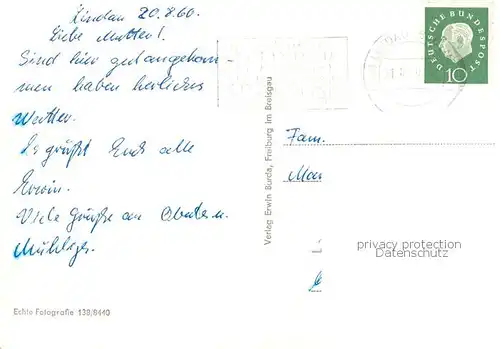 Lindau 20.8.60.
Liebe Mutter!
Sind hier gut angekom-
men haben herliches
Wetter.
Es grüßt Euch alle
Erwin.
Viele Grüße an
Echte Fotografie 138/8440
Verlag Erwin Burda, Freiburg im Breisgau
DEUTSCHE BUNDESPOST
10
Fam.
privacy protection
Datenschutz